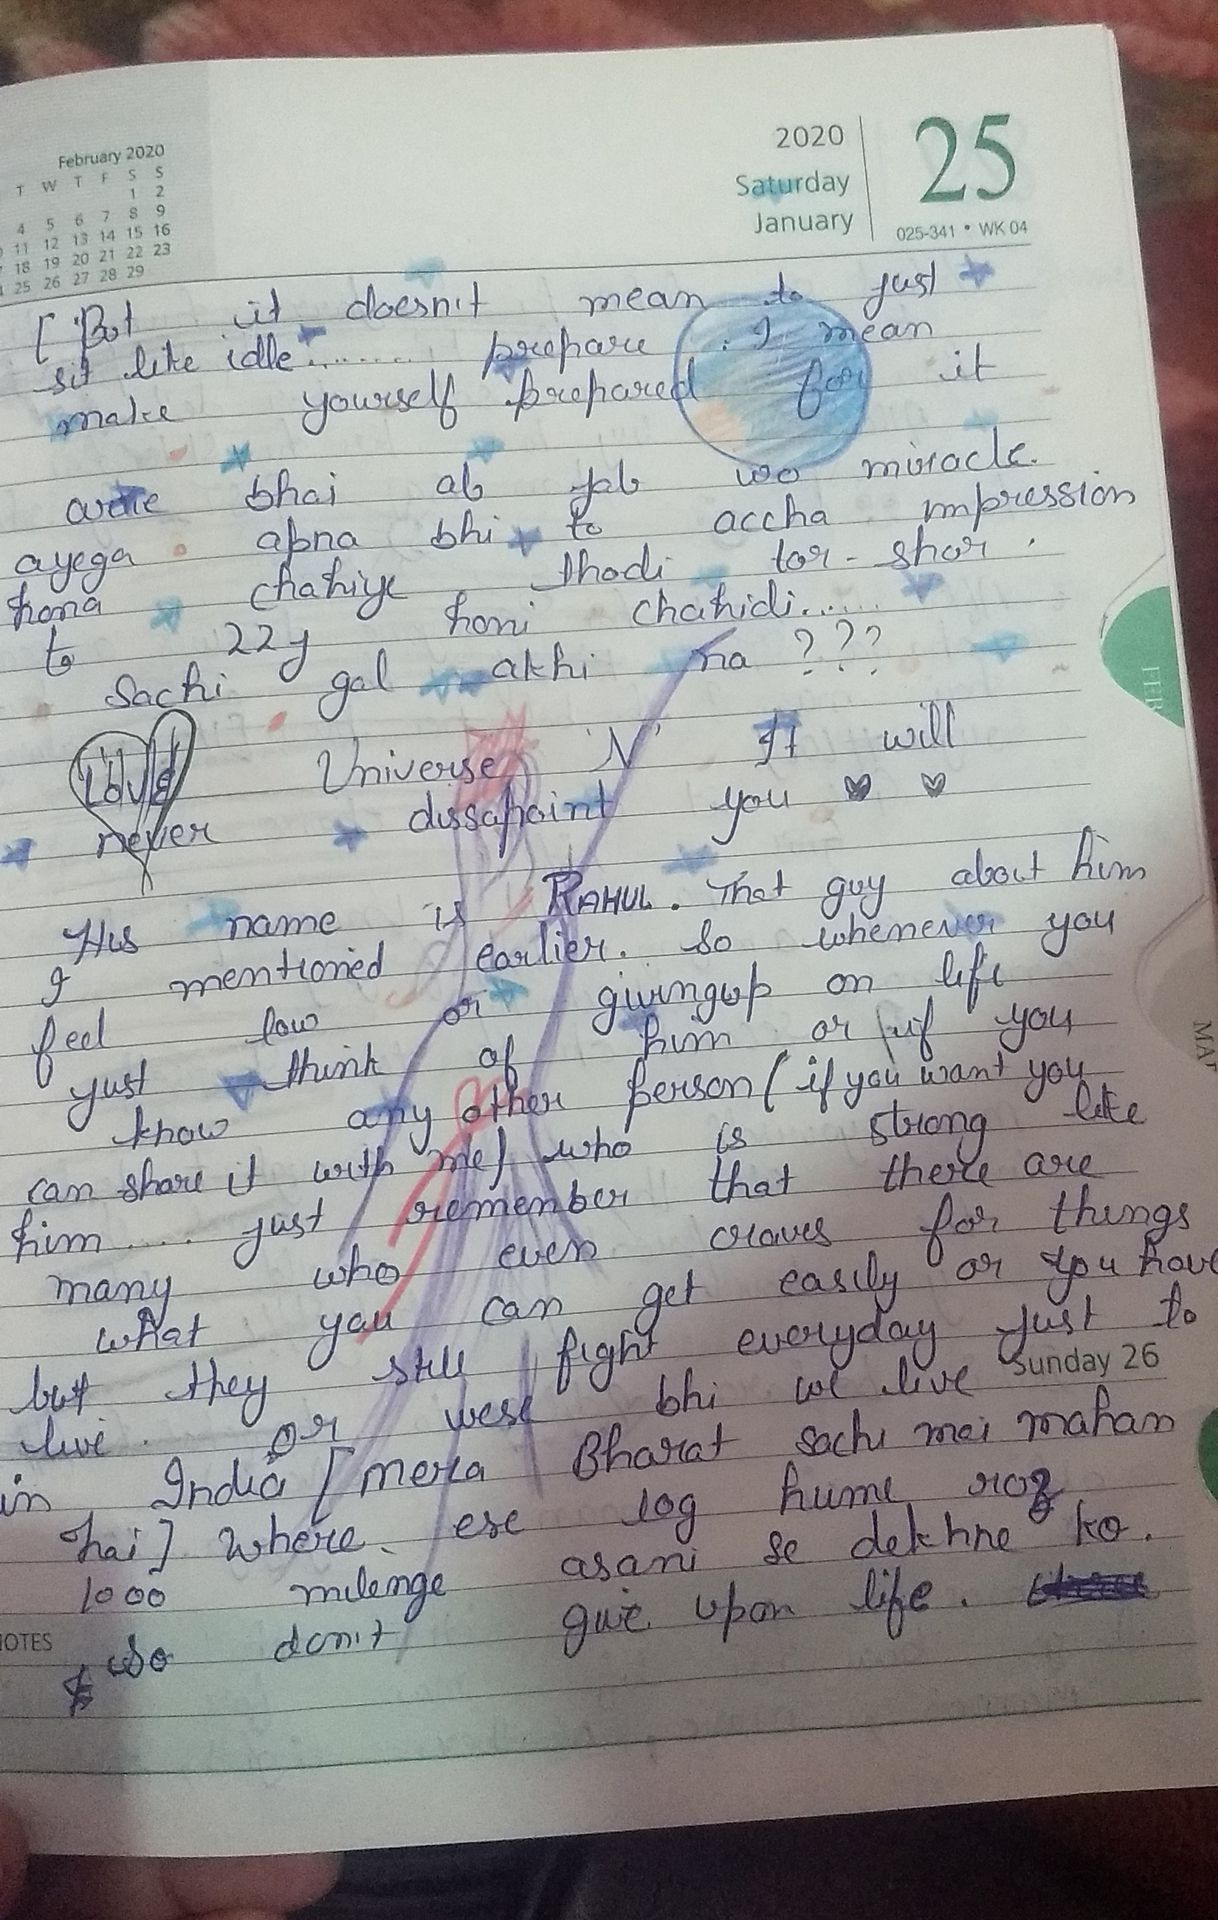 February 2020
T W T F S S
1 2
4 5 6 7 8 9
11 12 13 14 15 16
18 19 20 21 22 23
25 26 27 28 29
2020
Saturday
January
25
025-341 • WK 04
[ But it doesn't mean to just
sit like idle........ prepare. I mean
make yourself prepared for it
arre bhai ab jab wo miracle.
ayega apna bhi to accha impression
hona chahiye thodi tor-shor.
to honi chahidi.....
Sachi gal akhi na ???
Love Universe 'N' It will
never dissapoint you
His name is RAHUL. That guy about him
I mentioned earlier. So whenever you
feel low or givingup on life
just think of him or if you
know any other person (if you want you
can share it with me) who is strong like
him .... just remember that there are
many who even craves for things
what you can get easily or you have
but they still fight everyday just to
Sunday 26
live. or wese bhi we live
in India [mera Bharat sachi mei mahan
hai] where ese log hume roz
1000 milenge asani se dekhne ko.
NOTES
so don't give upon life.
FEB
MAR